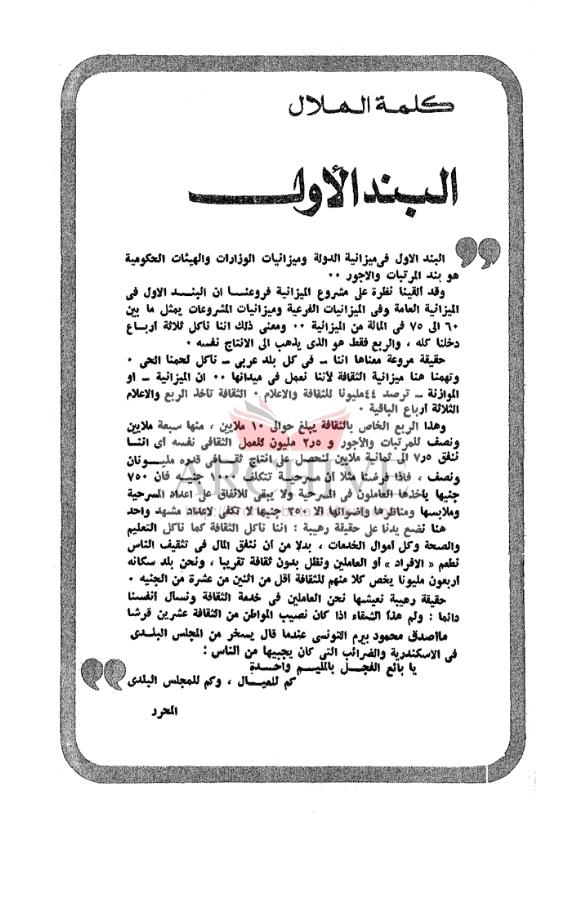 كلمة الهلال
البند الأول
البند الاول فى ميزانية الدولة وميزانيات الوزارات والهيئات الحكومية
هو بند المرتبات والاجور ٠٠
وقد ألقينا نظرة على مشروع الميزانية فروعنا ان البند الاول فى
الميزانية العامة وفى الميزانيات الفرعية وميزانيات المشروعات يمثل ما بين
٦٠ الى ٧٥ فى المائة من الميزانية ٠٠ ومعنى ذلك اننا ناكل ثلاثة ارباع
دخلنا كله ، والربع فقط هو الذى يذهب الى الانتاج نفسه ٠
حقيقة مروعة معناها اننا ــ فى كل بلد عربى ــ ناكل لحمنا الحى ٠
وتهمنا هنا ميزانية الثقافة لأننا نعمل فى ميدانها ٠٠ ان الميزانية ــ او
الموازنة ــ ترصد ٤٤ مليونا للثقافة والاعلام ٠ الثقافة تاخذ الربع والاعلام
الثلاثة ارباع الباقية ٠
وهذا الربع الخاص بالثقافة يبلغ حوالى ١٠ ملايين ، منها سبعة ملايين
ونصف للمرتبات والأجور و ٢٫٥ مليون للعمل الثقافى نفسه أى اننا
ننفق ٧٫٥ الى ثمانية ملايين لنحصل على انتاج ثقافى قدره مليونان
ونصف ، فاذا فرضنا مثلا أن مسرحية تتكلف ١٠٠٠ جنيه فان ٧٥٠
جنيها ياخذها العاملون فى المسرحية ولا يبقى للانفاق على اعداد المسرحية
وملابسها ومناظرها واضوائها الا ٢٥٠ جنيها لا تكفى لاعداد مشهد واحد
هنا نضع يدنا على حقيقة رهيبة : اننا ناكل الثقافة كما ناكل التعليم
والصحة وكل أموال الخدمات ، بدلا من أن ننفق المال فى تثقيف الناس
نطعم « الافراد » أو العاملين ونظل بدون ثقافة تقريبا ، ونحن بلد سكانه
اربعون مليونا يخص كلا منهم للثقافة أقل من اثنين من عشرة من الجنيه ٠
حقيقة رهيبة نعيشها نحن العاملين فى خدمة الثقافة ونسال أنفسنا
دائما : ولم هذا الشقاء اذا كان نصيب المواطن من الثقافة عشرين قرشا
ما اصدق محمود بيرم التونسى عندما قال يسخر من المجلس البلدى
فى الاسكندرية والضرائب التى كان يجبيها من الناس :
يا بائع الفجل بالمليم واحدة
كم للعيال ، وكم للمجلس البلدى
المحرر
ARCHIVE